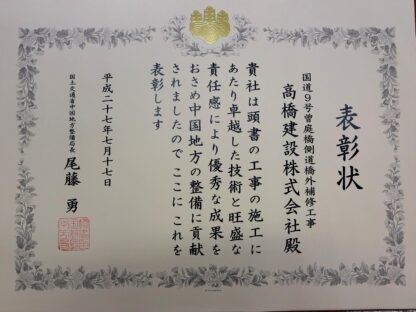 表彰状
国道9号曽庭橋側道橋外補修工事
高橋建設株式会社殿
貴社は頭書の工事の施工に
あたり卓越した技術と旺盛な
責任感により優秀な成果を
おさめ中国地方の整備に貢献
されましたので ここに これを
表彰します
平成二十七年七月十七日
国土交通省中国地方整備局長 尾藤 勇